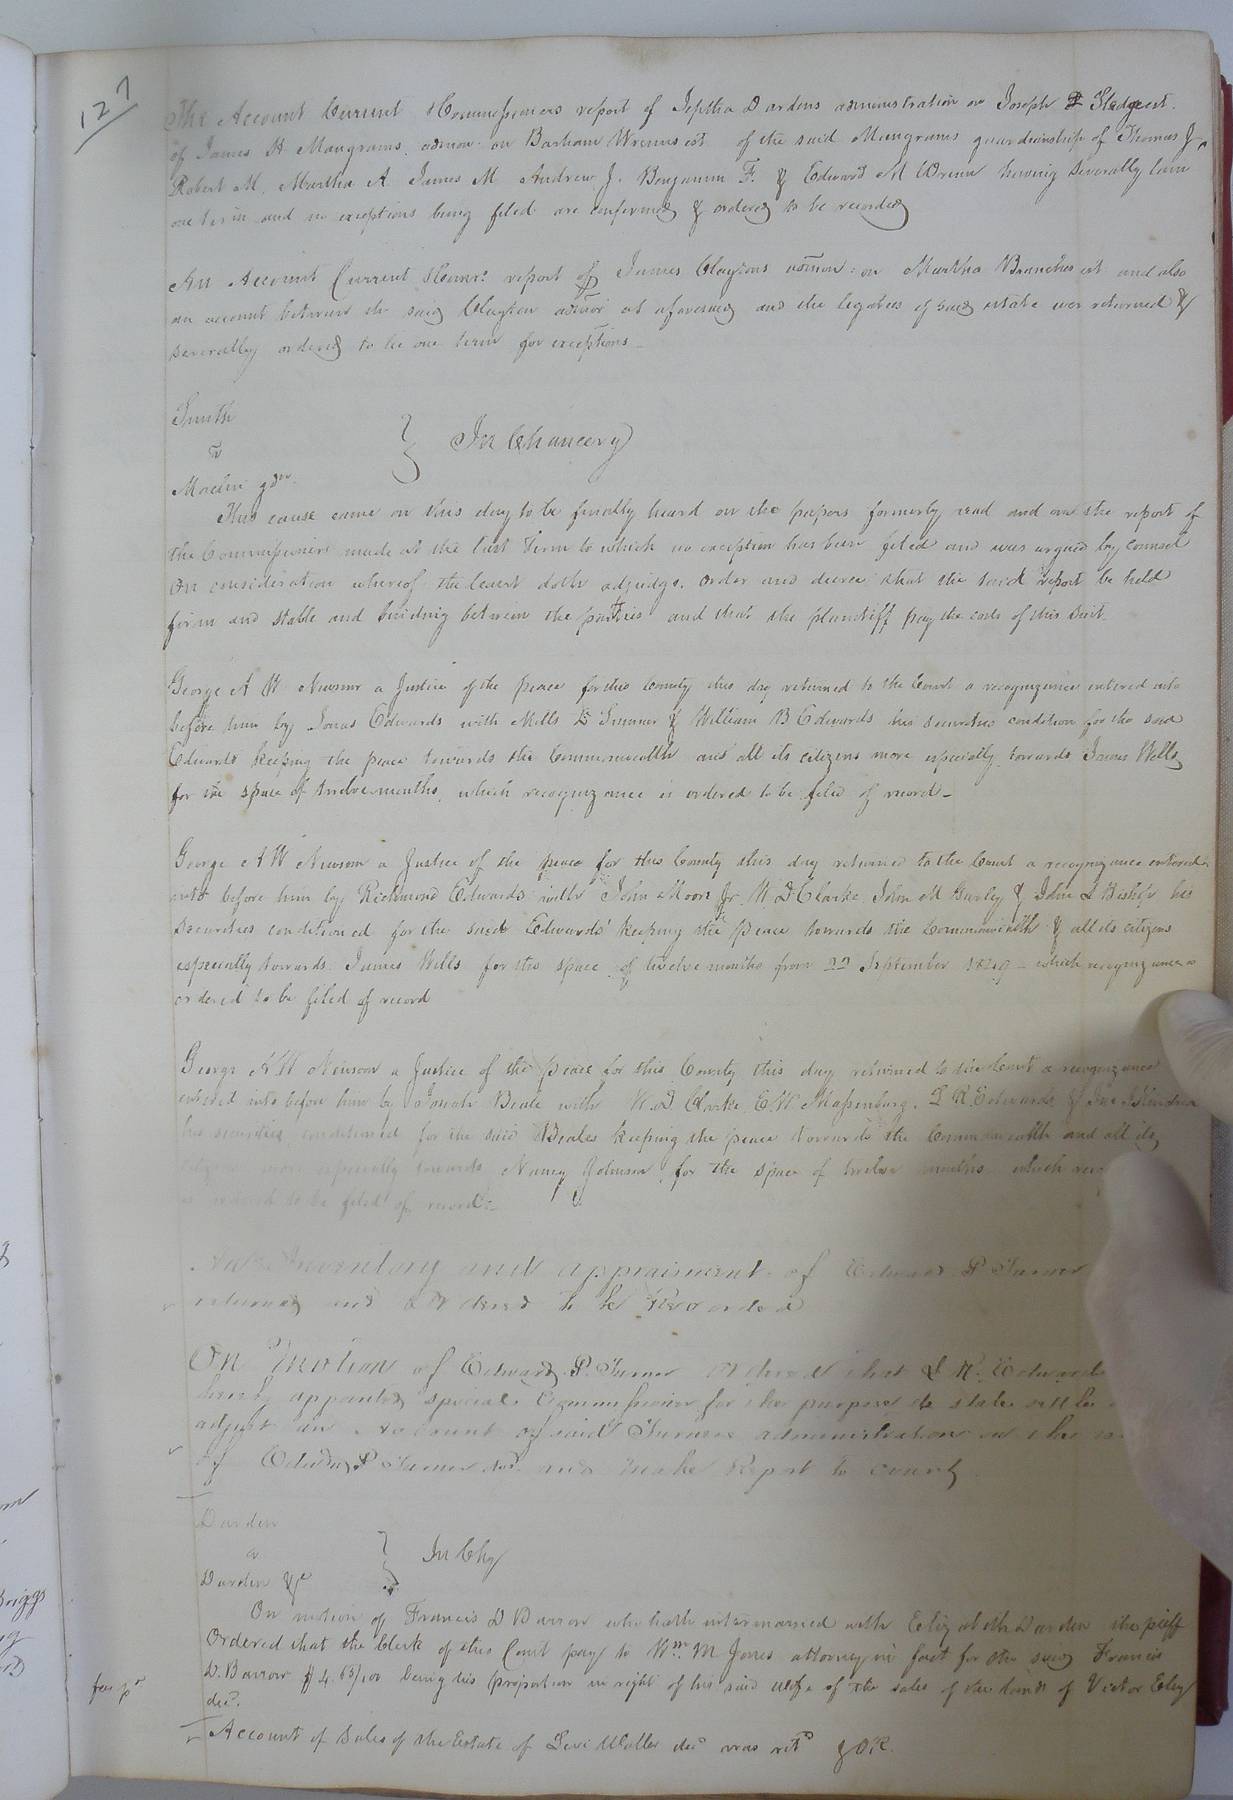 127
The Account Current & Commissioners report of Jeptha Dardens administration on Joseph Sledge est.
of James H Mangrams admon on Barham Wrenns est of the said Mangrams guardianship of Thomas J.
Robert M. Martha A James M Andrew J. Benjamin F. & Edward M Wrenn having severally lain
one term and no exceptions being filed are confirmed & ordered to be recorded
An Account Current & Comrs. report of James Claytons admon: on Martha Branches est and also
an account between the said Clayton admor as aforesaid and the legatees of said estate were returned &
severally ordered to lie one term for exceptions
Smith
v
Maclin gdn.
} In Chancery
This cause came on this day to be finally heard on the papers formerly read and on the report of
the Commissioners made at the last Term to which no exception has been filed and was argued by counsel
On consideration whereof the Court doth adjudge. order and decree that the said report be held
firm and stable and binding between the parties and that the plaintiff pay the costs of this suit.
George A W Newsom a Justice of the peace for this County this day returned to the Court a recognizance entered into
before him by Jonas Edwards with Mills Sumner & William B Edwards his securities condition for the said
Edwards keeping the peace towards the Commonwealth and all its citizens more especially towards James Wells
for the space of twelve months, which recognizance is ordered to be filed of record
George A W Newsom a Justice of the peace for this County this day returned to the Court a recognizance entered
into before him by Richmond Edwards with John Moore Jr W. D Clarke, John M Gurley & John L Bishop his
Securities conditioned for the said Edwards' keeping the peace towards the Commonwealth & all its citizens
especially towards James Wells for the space of twelve months from 22 September 1849 - which recognizance is
ordered to be filed of record
George A W Newsom a Justice of the peace for this County this day returned to the Court a recognizance
entered into before him by Josiah Beale with W. D Clarke, E. W Massenburg, L R. Edwards &
his securities conditioned for the said Beales keeping the peace towards the Commonwealth and all its
citizens more especially towards Nancy Johnson for the space of twelve months which
is ordered to be filed of record
Inventory and appraisment of Edward P Turner
returned and Ordered to be Recorded
On Motion of Edward P. Turner Ordered that L R. Edwards
hereby appointed special Commissioner for the purpose to state settle
adjust an Account of said Turners administration on the
of Edwd P Turner decd. and make Report to Court
Darden
v
Darden &c
} In Chy
On motion of Francis D Barrow who hath intermarried with Elizabeth Darden the plff
Ordered that the Clerk of this Court pay to Wm. M Jones attorney in fact for the said Francis
D. Barrow $4.63/100 being his proportion in right of his said wife of the sales of the lands of Victor Eley
decd.
fee pd
Account of Sales of the Estate of Levi Waller decd was retd & O.R.